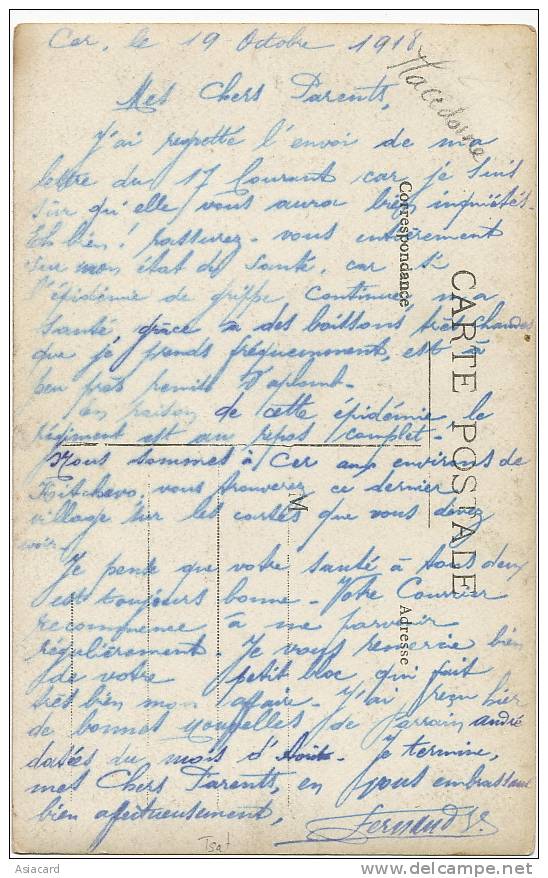 Cer, le 19 Octobre 1918
Macédoine
Mes Chers Parents,
J'ai regretté l'envoi de ma
lettre du 17 Courant car je suis
sûr qu'elle vous aura bien inquiétés.
Eh bien! rassurez-vous entièrement
sur mon état de santé, car si
l'épidémie de grippe continue, ma
santé grâce à des boissons très chaudes
que je prends fréquemment, est à
peu près remise d'aplomb.
En raison de cette épidémie le
régiment est au repos complet.
Nous sommes à Cer aux environs de
Kitchevo, vous trouverez ce dernier
village sur les cartes que vous devez
avoir.
Je pense que votre santé à tous deux
est toujours bonne. Votre Courrier
recommence à me parvenir
régulièrement. Je vous remercie bien
de votre petit bloc qui fait
très bien mon affaire. J'ai reçu hier
de bonnes nouvelles de Parrain andré
datées du mois d'Août. Je termine,
mes Chers Parents, en vous embrassant
bien affectueusement,
Fernand
CARTE POSTALE
Correspondance
Adresse
M
Tsat
Asiacard
delcampe.net